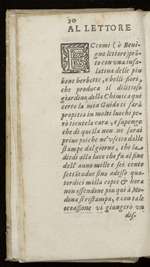 AL LETTORE
Ecomi (ò Beni-
gno lettore) prõ-
to con vna insa-
latina delle più
bone herbette, e belli fiori,
che produca il dilitioso
giardino, della Chimica; qui
certo la mia Guida ti sarà
propitia in molte luochi pe-
rò tieniti la cara, e supongo
che di quella non ne sarai
privo poiche ne'
del giorno, che la
diedi alla luce che fu al fine
dell' anno mille e sei cento
settãta due sino adesso qua-
tordici milla copie & hora
non essendone più quà à Mo-
dena si ristampa, e con tale
occasione vi giungerò vn
dis-